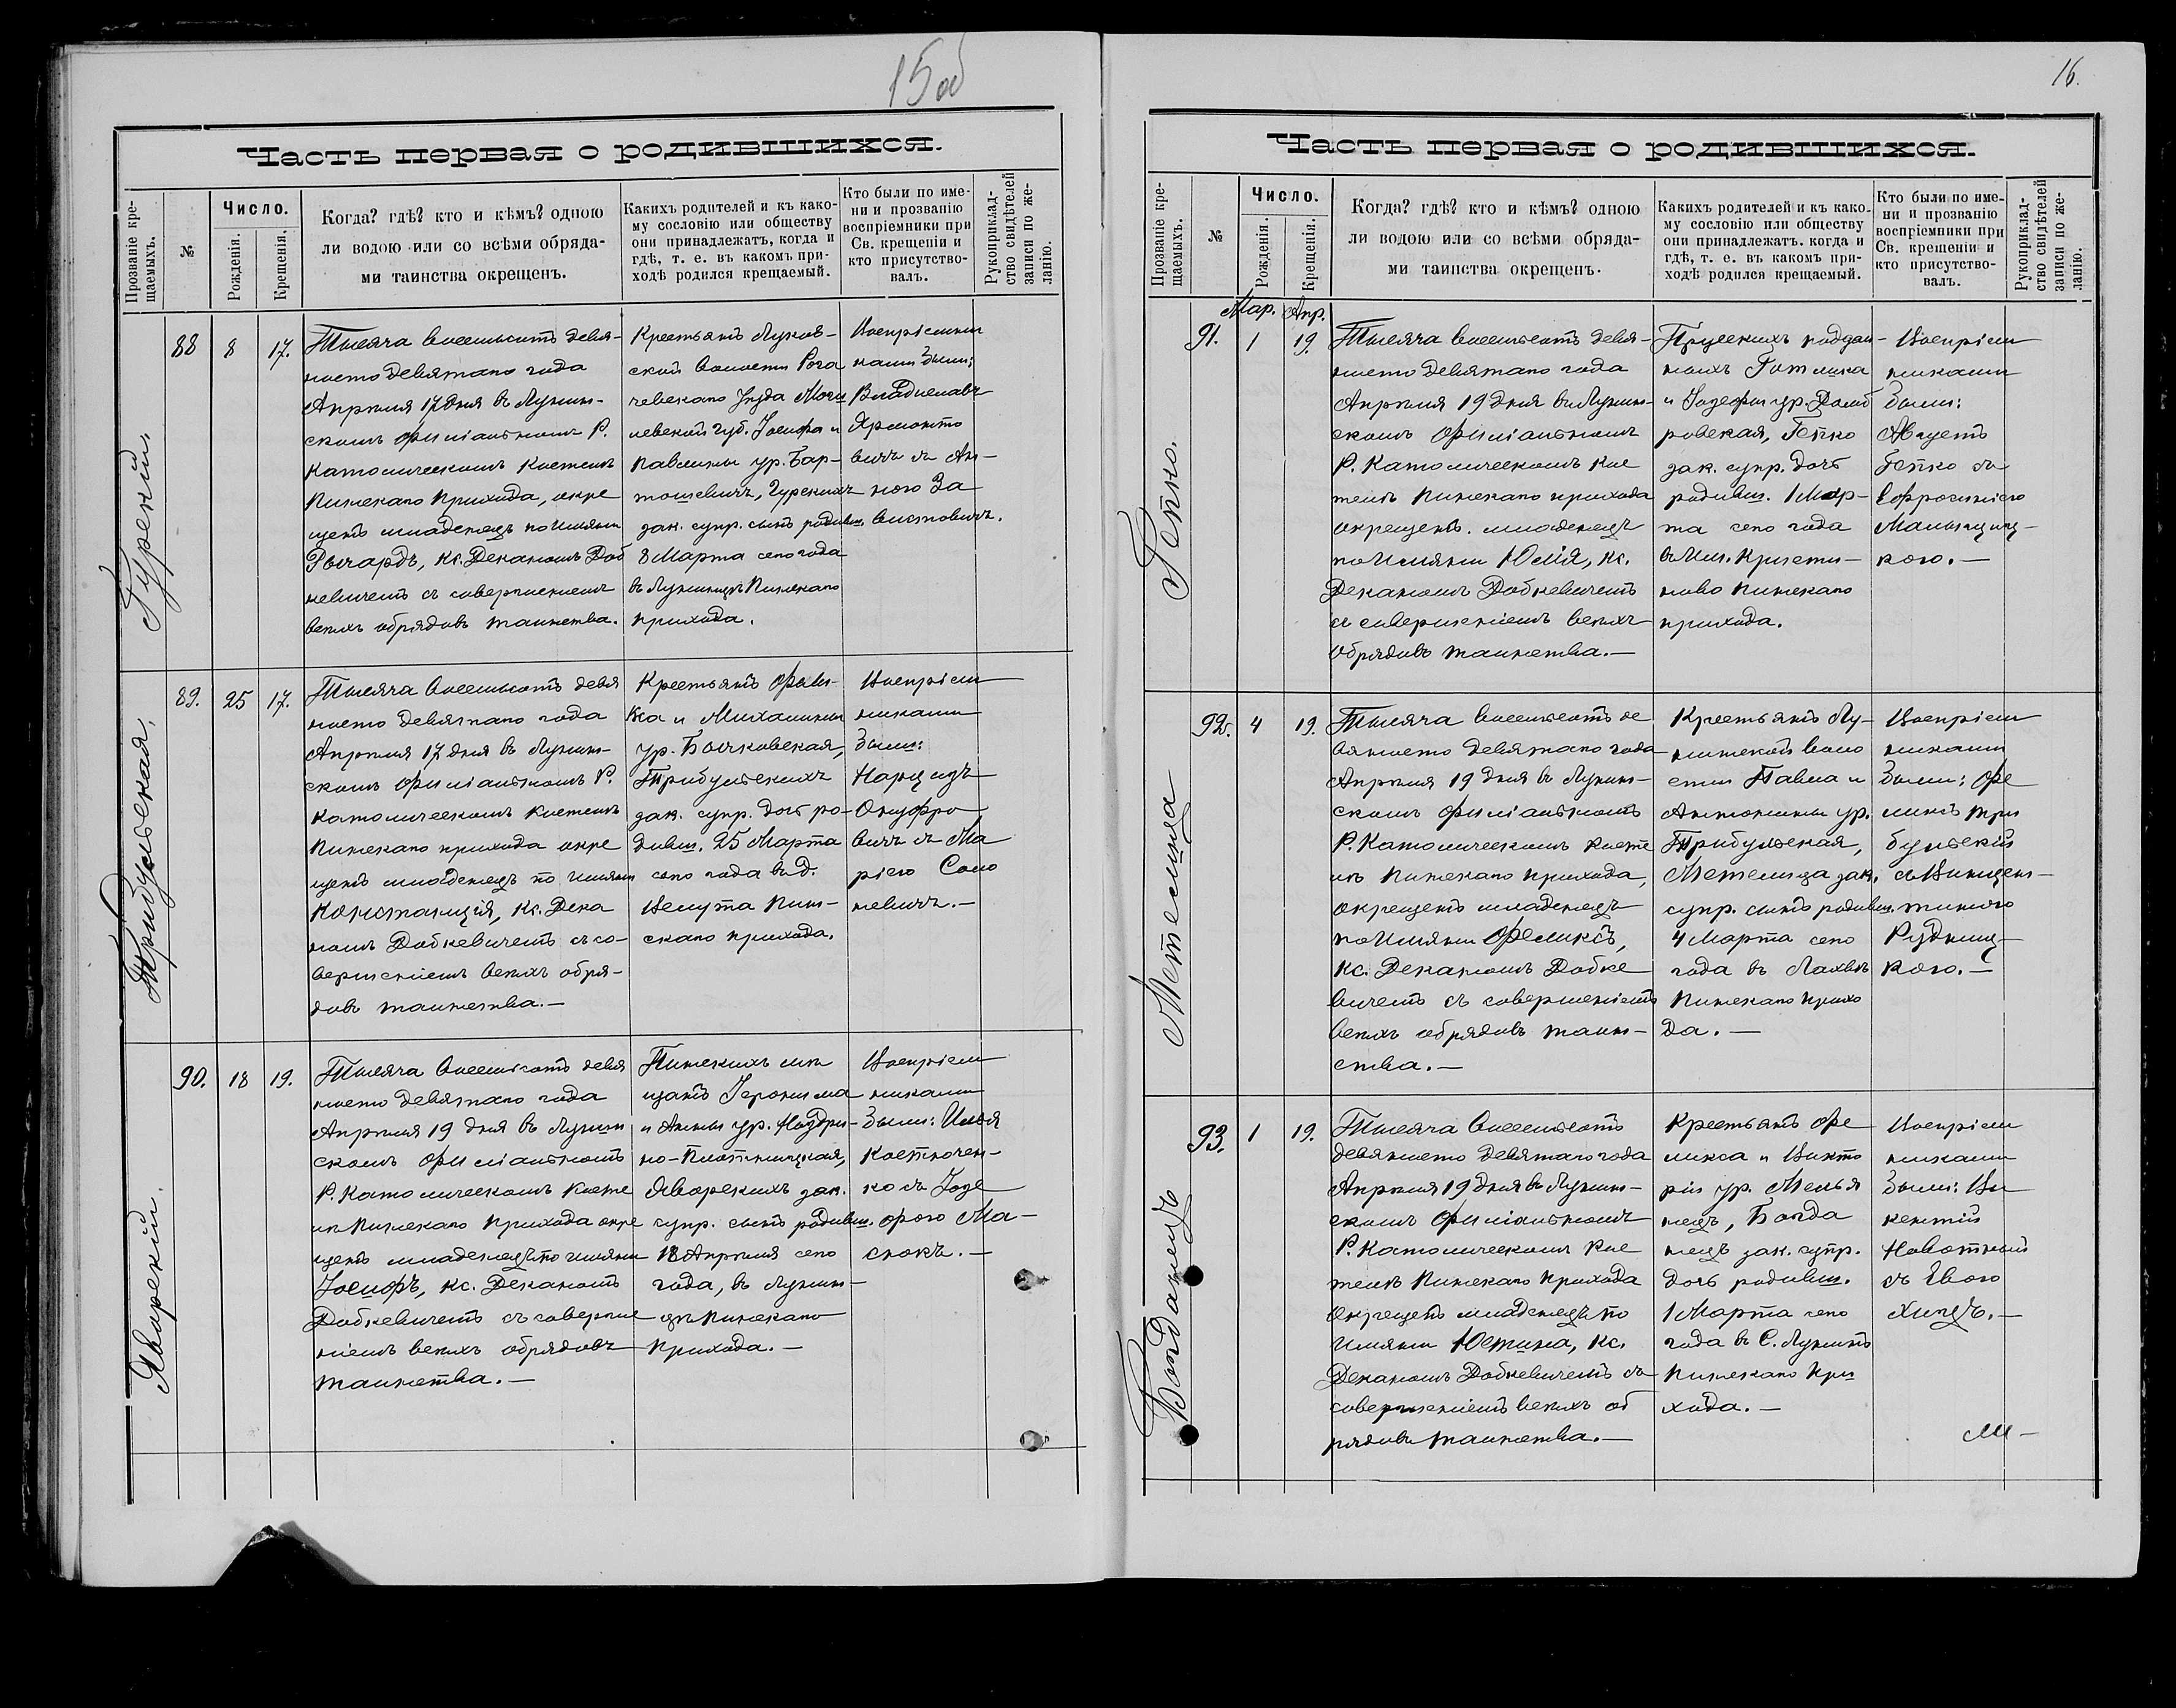 15об
Часть первая о родившихся.
Прозваніе кре-
щаемыхъ.
№
Число.
Рожденія.
Крещенія.
Когда? гдѣ? кто и кѣмъ? одною
ли водою или со всѣми обряда-
ми таинства окрещенъ.
Какихъ родителей и къ како-
му сословію или обществу
они принадлежатъ, когда и
гдѣ, т. е. въ какомъ при-
ходѣ родился крещаемый.
Кто были по име-
ни и прозванію
воспріемники при
Св. крещеніи и
кто присутство-
валъ.
Рукоприклад-
ство свидѣтелей
записи по же-
ланію.
Гурскій.
88
8
17.
Тысяча восемьсотъ девя-
носто девятаго года
Апрѣля 17 дня въ Лунин-
скомъ филіальномъ Р.
Католическомъ костелѣ
Пинскаго прихода, окре
щенъ младенецъ по имяни
Рычардъ, Кс. Деканомъ Доб
кевичемъ съ совершеніемъ
всѣхъ обрядовъ таинства.
Крестьянъ Луков-
ской волости Рога
чевскаго уѣзда Моги
левской губ. Іосифа и
Павлины ур. Бар-
тошевичъ, Гурскихъ
зак. супр. сынъ родивш.
8 Марта сего года
въ Лунинцѣ Пинскаго
прихода.
Воспріемни
ками были:
Владиславъ
Ярмонто
вичъ съ Ан-
ною За
вистовичъ.
Трибульская.
89.
25
17.
Тысяча восемьсотъ девя
носто девятаго года
Апрѣля 17 дня въ Лунин-
скомъ филіальномъ Р.
Католическомъ костелѣ
Пинскаго прихода окре
щенъ младенецъ по имяни
Констанція, Кс. Дека
номъ Добкевичемъ съ со-
вершеніемъ всѣхъ обря-
довъ таинства.—
Крестьянъ
и Михалины
ур. Бычковская,
Трибульскихъ
зак. супр. дочь ро-
дивш. 25 Марта
сего года въ д.
Велута Пин-
скаго прихода.
Воспріем
никами
были:
Нарцизъ
Онуфро
вичъ съ Ма
ріею Сало
невичъ.—
Яворскій.
90.
18
19.
Тысяча восемьсотъ девя
носто девятаго года
Апрѣля 19 дня въ Лунин
скомъ филіальномъ
Р. Католическомъ косте
лѣ Пинскаго прихода окре
щенъ младенецъ по имяни
Іосифъ, Кс. Деканомъ
Добкевичемъ съ соверше
ніемъ всѣхъ обрядовъ
таинства.—
Пинскихъ мѣ
щанъ Іеронима
и Анны ур. Ноздрин-
но-Плотницкая,
Яворскихъ зак.
супр. сынъ родивш.
18 Апрѣля сего
года, въ Лунин-
цѣ Пинскаго
прихода.—
Воспріем
никами
были: Илья
Костючен-
ко съ Іозе
фою Ма-
сюкъ.—
16.
Часть первая о родившихся.
Прозваніе кре-
щаемыхъ.
№
Число.
Рожденія.
Крещенія.
Когда? гдѣ? кто и кѣмъ? одною
ли водою или со всѣми обряда-
ми таинства окрещенъ.
Какихъ родителей и къ како-
му сословію или обществу
они принадлежатъ. когда и
гдѣ, т. е. въ какомъ при-
ходѣ родился крещаемый.
Кто были по име-
ни и прозванію
воспріемники при
Св. крещеніи и
кто присутство-
валъ.
Рукоприклад-
ство свидѣтелей
записи по же-
ланію.
Гепко.
91.
Мар.
1
Апр.
19.
Тысяча восемьсотъ девя-
носто девятаго года
Апрѣля 19 дня въ Лунин-
скомъ филіальномъ
Р. Католическомъ кос
телѣ Пинскаго прихода
окрещенъ младенецъ
по имяни Юлія, Кс.
Деканомъ Добкевичемъ
съ совершеніемъ всѣхъ
обрядовъ таинства.—
Прусскихъ поддан-
ныхъ Готлика
и Іозефы ур. Домб
ровская, Гепко
зак. супр. дочь
родивш. 1 Мар-
та сего года
въ им. Кристи-
ново Пинскаго
прихода.
Воспріем
никами
были:
Августъ
Гепко съ
Ефросиніею
Мальчиц-
кою.—
Метелица
92.
4
19.
Тысяча восемьсотъ де
вяносто девятаго года
Апрѣля 19 дня въ Лунин-
скомъ филіальномъ
Р. Католическомъ косте
лѣ Пинскаго прихода,
окрещенъ младенецъ
по имяни Феликсъ,
Кс. Деканомъ Добке
вичемъ съ совершеніемъ
всѣхъ обрядовъ таин-
ства.—
Крестьянъ Лу-
нинской воло
сти Павла и
Антонины ур.
Трибульская,
Метелица зак.
супр. сынъ родивш.
4 Марта сего
года въ Лахвѣ
Пинскаго прихо
да.—
Воспріем
никами
были: Фе
ликсъ Три
бульскій
съ Винцен-
тиною
Рудниц-
кою.—
Богданецъ
93.
1
19.
Тысяча восемьсотъ
девяносто девятаго года
Апрѣля 19 дня въ Лунин-
скомъ филіальномъ
Р. Католическомъ кос
телѣ Пинскаго прихода
окрещенъ младенецъ по
имяни Юстина, Кс.
Деканомъ Добкевичемъ съ
совершеніемъ всѣхъ об
рядовъ таинства.—
Крестьянъ Фе
ликса и Викто
ріи ур. Мелья
нецъ, Богда
нецъ зак. супр.
дочь родивш.
1 Марта сего
года въ С. Лунинѣ
Пинскаго при
хода.—
Воспріем
никами
были: Ви
кентій
Новотный
съ Евою
Хипцъ.—